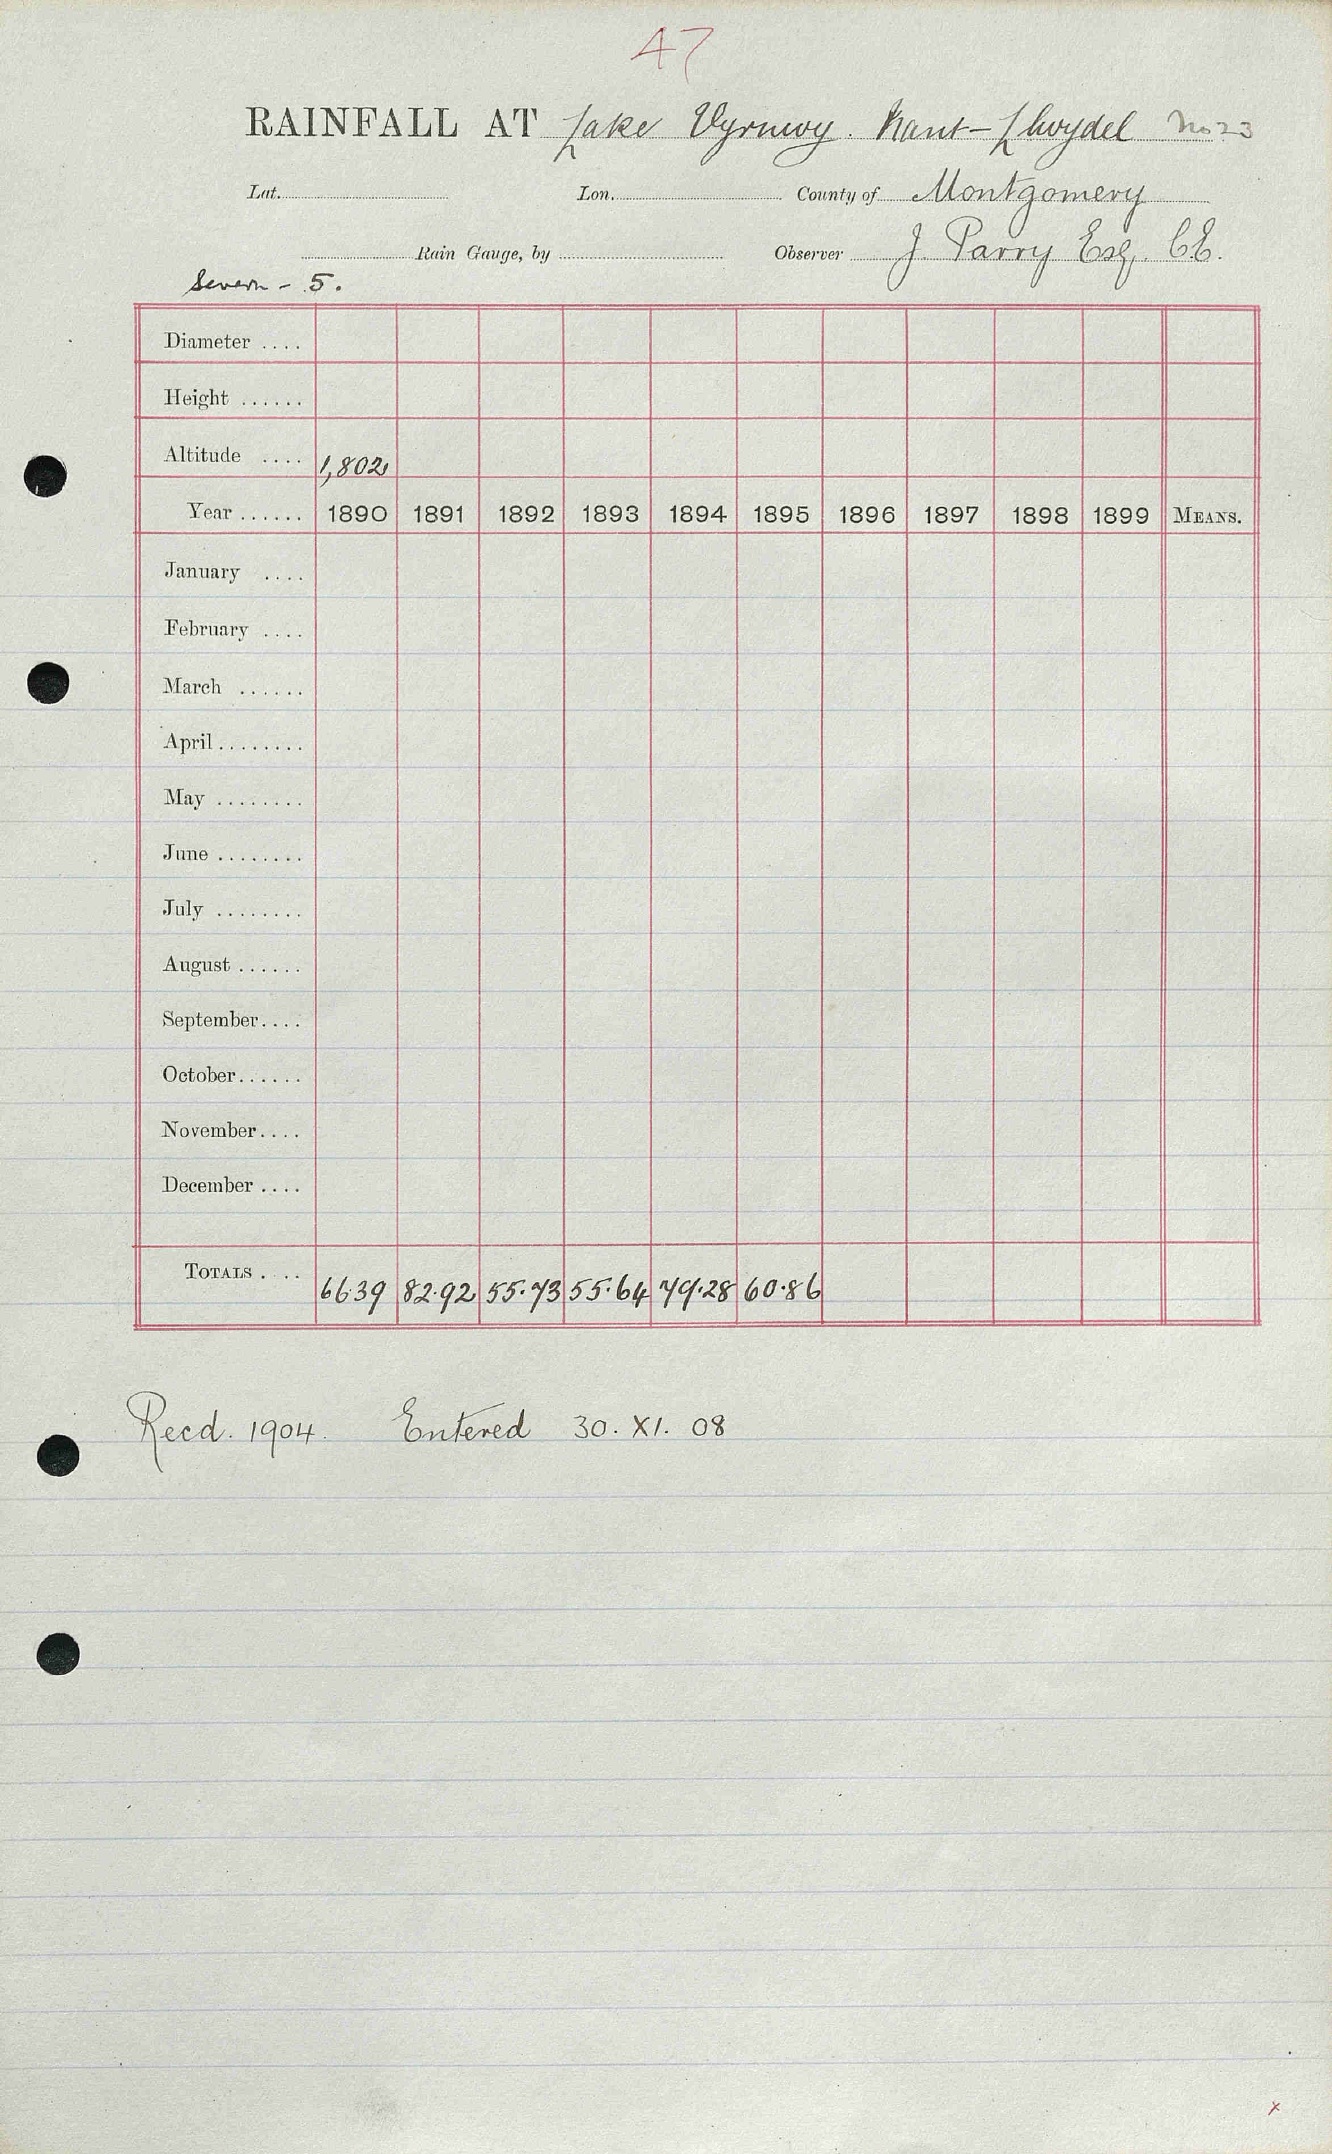 47
RAINFALL AT Lake Vyrnwy. Nant-Llwydel No 23
Lat. Lon. County of Montgomery
Rain Gauge, by Observer J. Parry Esq. C.E.
Severn - 5.
Diameter ....
Height ......
Altitude .... 1,802
Year ...... 1890 1891 1892 1893 1894 1895 1896 1897 1898 1899 MEANS.
January ....
February ....
March ......
April ........
May ........
June ........
July ........
August ......
September ....
October ......
November ....
December ....
TOTALS .... 66.39 82.92 55.73 55.64 79.28 60.86
Recd. 1904. Entered 30. XI. 08
x